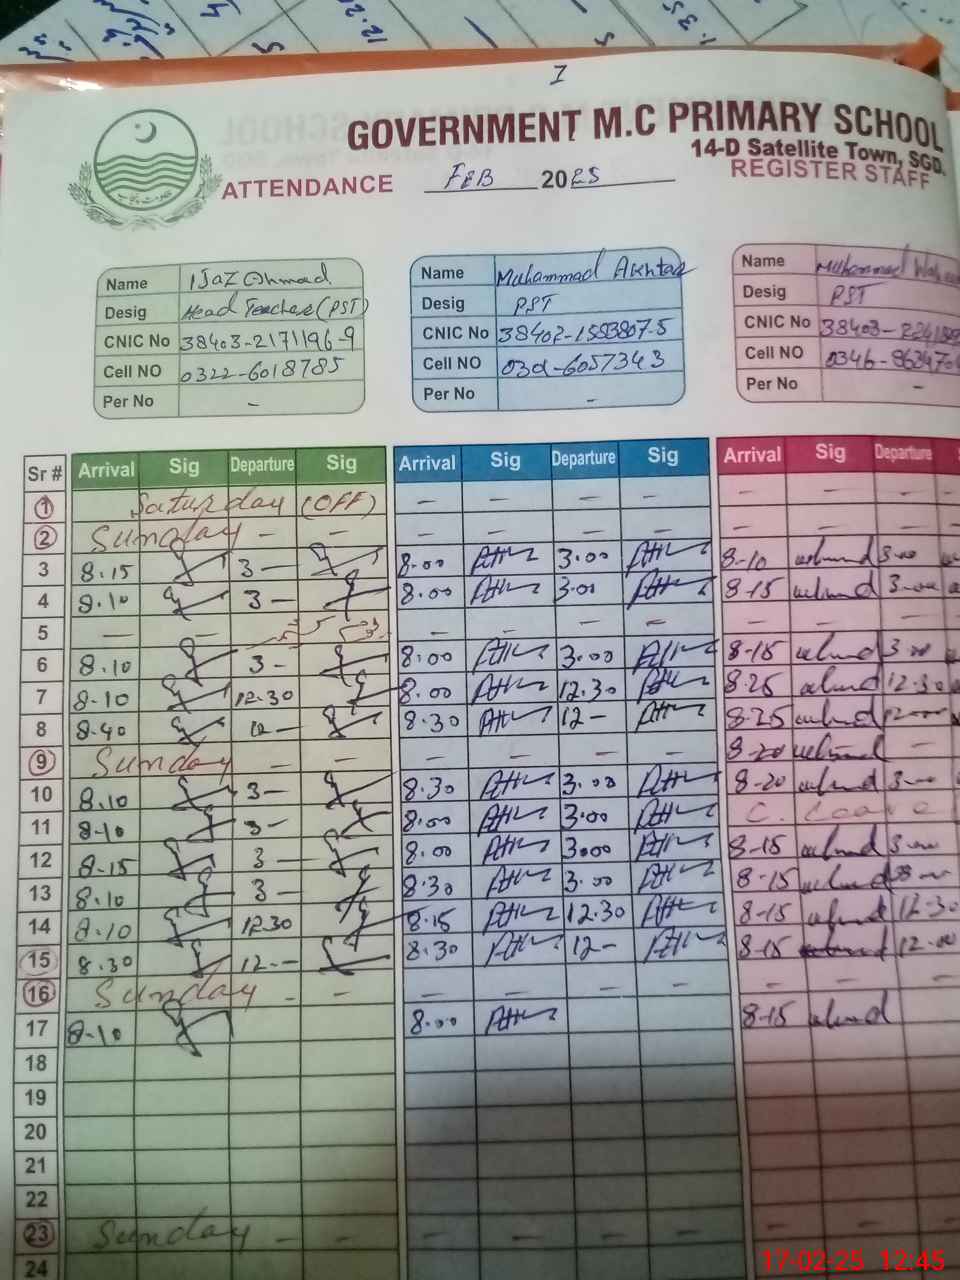 I
GOVERNMENT M.C PRIMARY SCHOOL
14-D Satellite Town, SGD.
ATTENDANCE FEB 2025 REGISTER STAFF
Name Ijaz Ahmad
Desig Head Teacher (PST)
CNIC No 38403-2171196-9
Cell NO 0322-6018785
Per No -
Name Muhammad Akhtar
Desig PST
CNIC No 38402-1553807-5
Cell NO 0301-6057343
Per No -
Name Muhammad
Desig PST
CNIC No 38403-
Cell NO 0346-
Per No -
Sr # Arrival Sig Departure Sig Arrival Sig Departure Sig Arrival Sig Departure
1 Saturday (OFF) - - - - - - -
2 Sunday - - - - - - - - -
3 8.15 3- 8.00 3.00 8-10 3-00
4 8.10 3- 8.00 3.00 8-15 3-00
5 - - - - - - - - -
6 8.10 3- 8:00 3.00 8-15 3-00
7 8-10 12.30 8.00 12.30 8.25 12.30
8 8.40 12- 8.30 12- 8-25 12-00
9 Sunday - - - - - - 8-20 -
10 8.10 3- 8.30 3.00 8-20 3-00
11 8-10 3- 8.00 3.00 C. Leave
12 8-15 3- 8.00 3.00 8-15 3-00
13 8.10 3- 8.30 3.00 8-15 3-00
14 8.10 12.30 8.15 12.30 8-15 12.30
15 8.30 12-- 8.30 12- 8-15 12.00
16 Sunday - - - - - - - - -
17 8-10 8.00 8-15
18
19
20
21
22
23 Sunday - - - - - - - - -
24
17-02-25 12:45